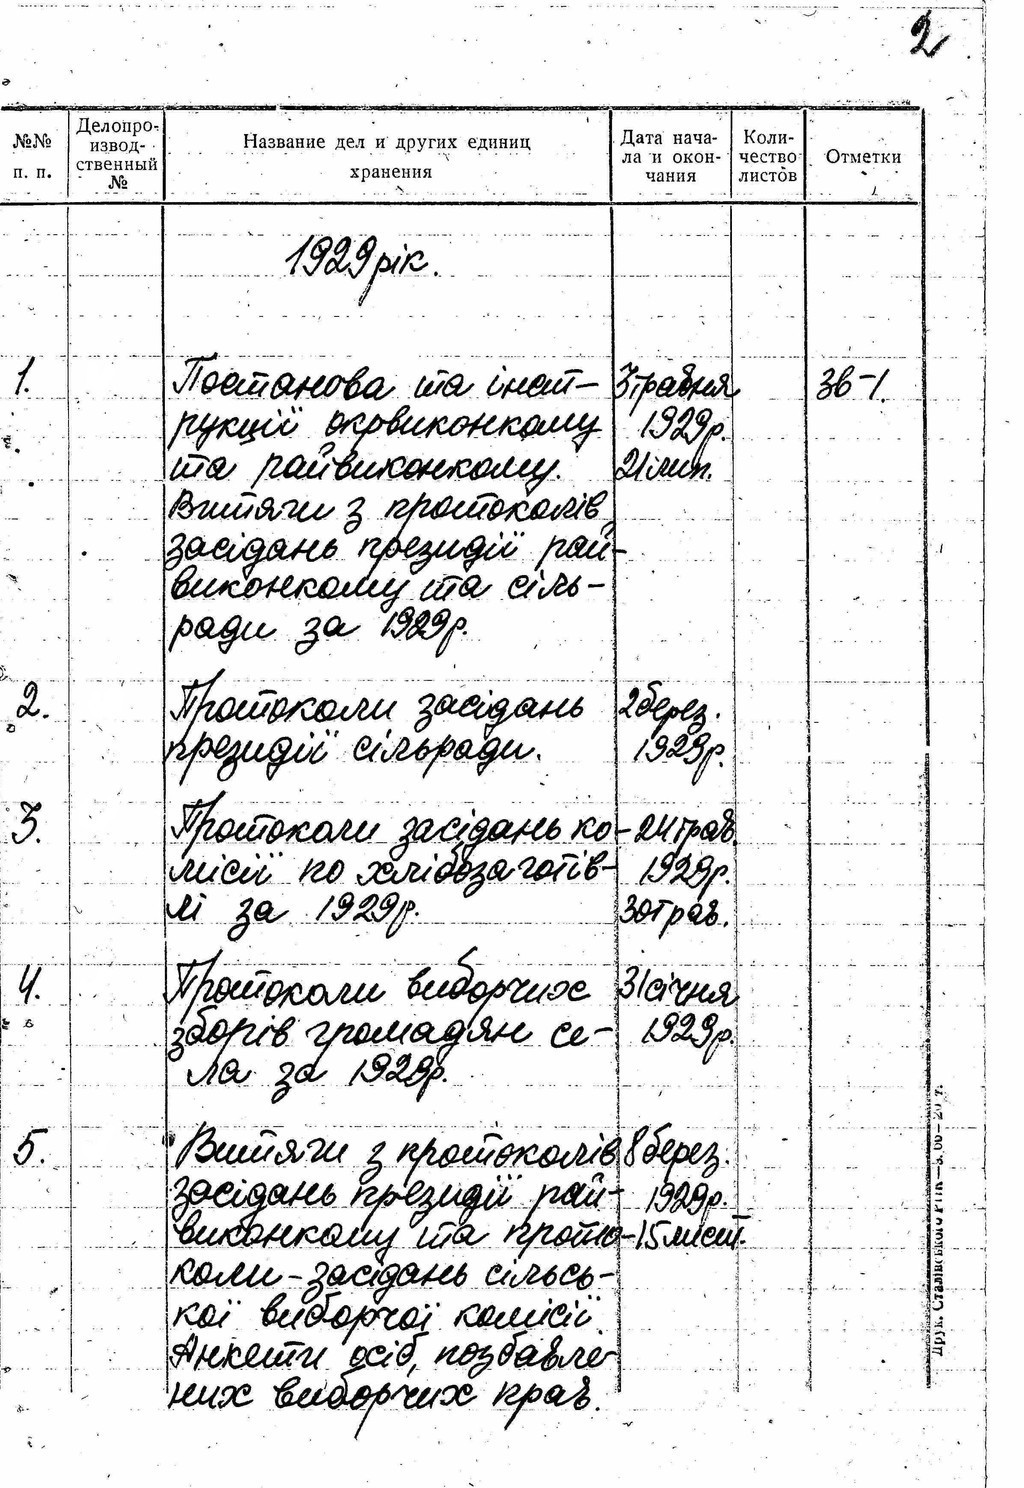 2
№№
п. п.
Делопро-
извод-
ственный
№
Название дел и других единиц
хранения
Дата нача-
ла и окон-
чания
Коли-
чество
листов
Отметки
1929 рік.
1.
Постанова та інст-
рукції окрвиконкому
та райвиконкому.
Витяги з протоколів
засідань президії рай-
виконкому та сіль-
ради за 1929р.
3 травня
1929р.
21 лип.
зв-1.
2.
Протоколи засідань
президії сільради.
2 берез.
1929р.
3.
Протоколи засідань ко-
місії по хлібозаготів-
лі за 1929р.
24 трав.
1929р.
30 трав.
4.
Протоколи виборчих
зборів громадян се-
ла за 1929р.
31 січня
1929р.
5.
Витяги з протоколів
засідань президії рай-
виконкому та прото-
коли засідань сільсь-
кої виборчої комісії.
Анкети осіб, позбавле
них виборчих прав.
8 берез.
1929р.
15 лист.
Друк. Сталінського